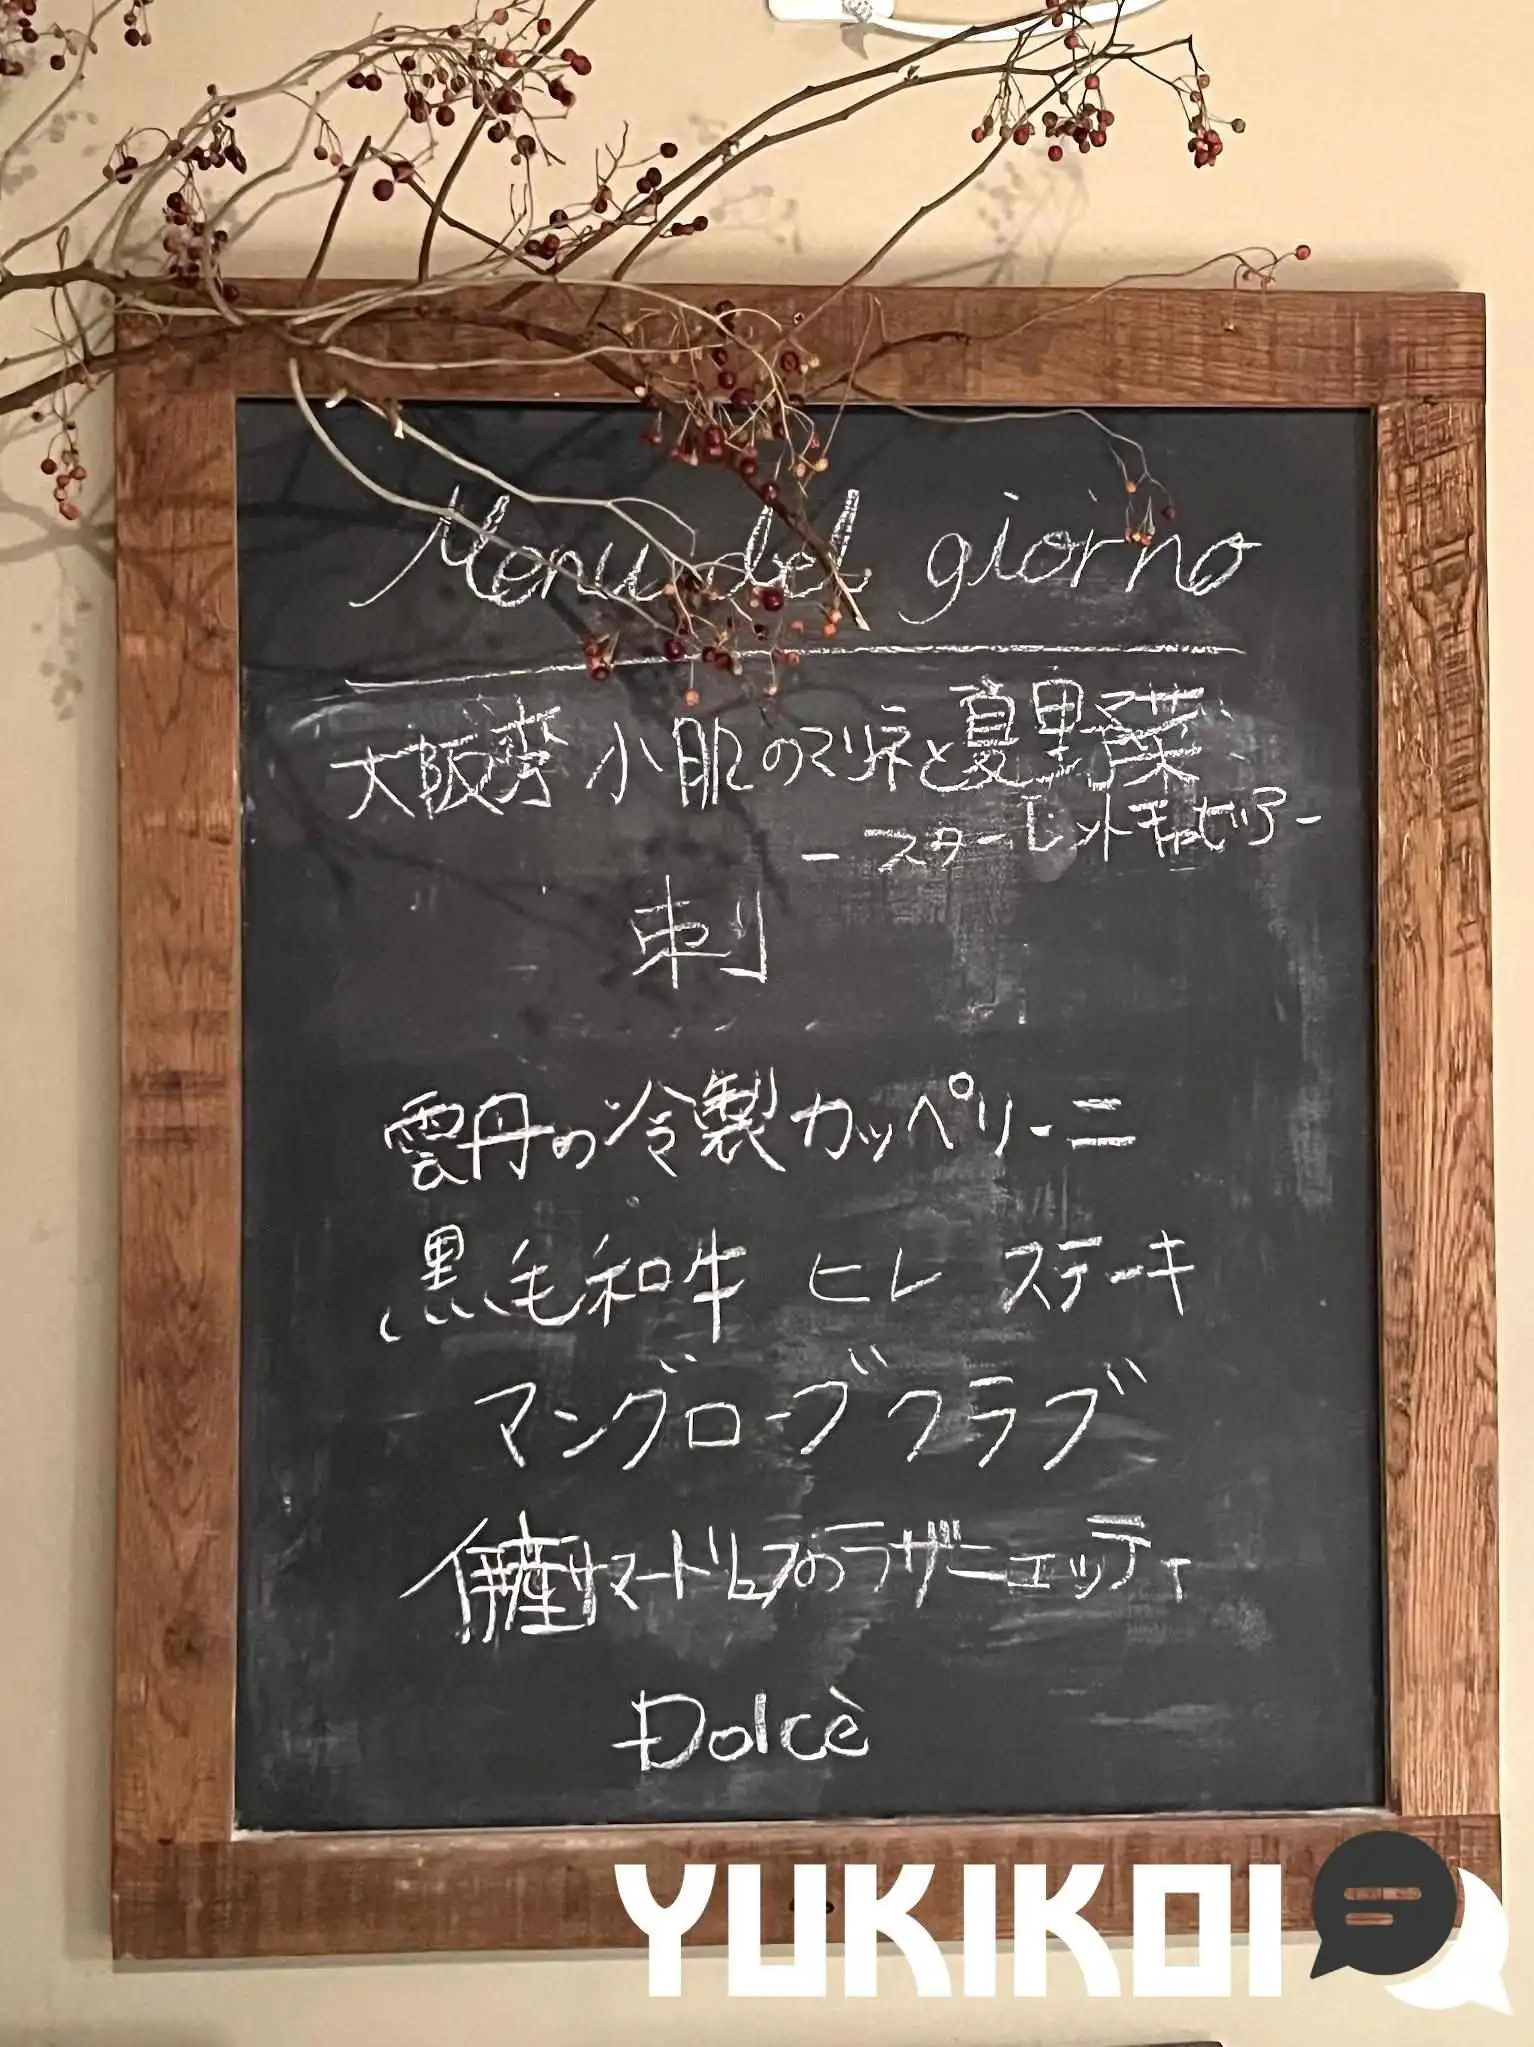 Menu del giorno
大阪湾 小肌のマリネと夏野菜
- スターレットキャビア -
刺
雲丹の冷製カッペリーニ
黒毛和牛 ヒレ ステーキ
マングローブクラブ
サマートリュフのラザニェッティ
Dolcè
YUKIKOI